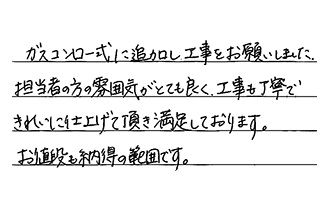 ガスコンロ一式に追加し工事をお願いしました。
担当者の方の雰囲気がとても良く、工事も丁寧で
きれいに仕上げて頂き満足しております。
お値段も納得の範囲です。